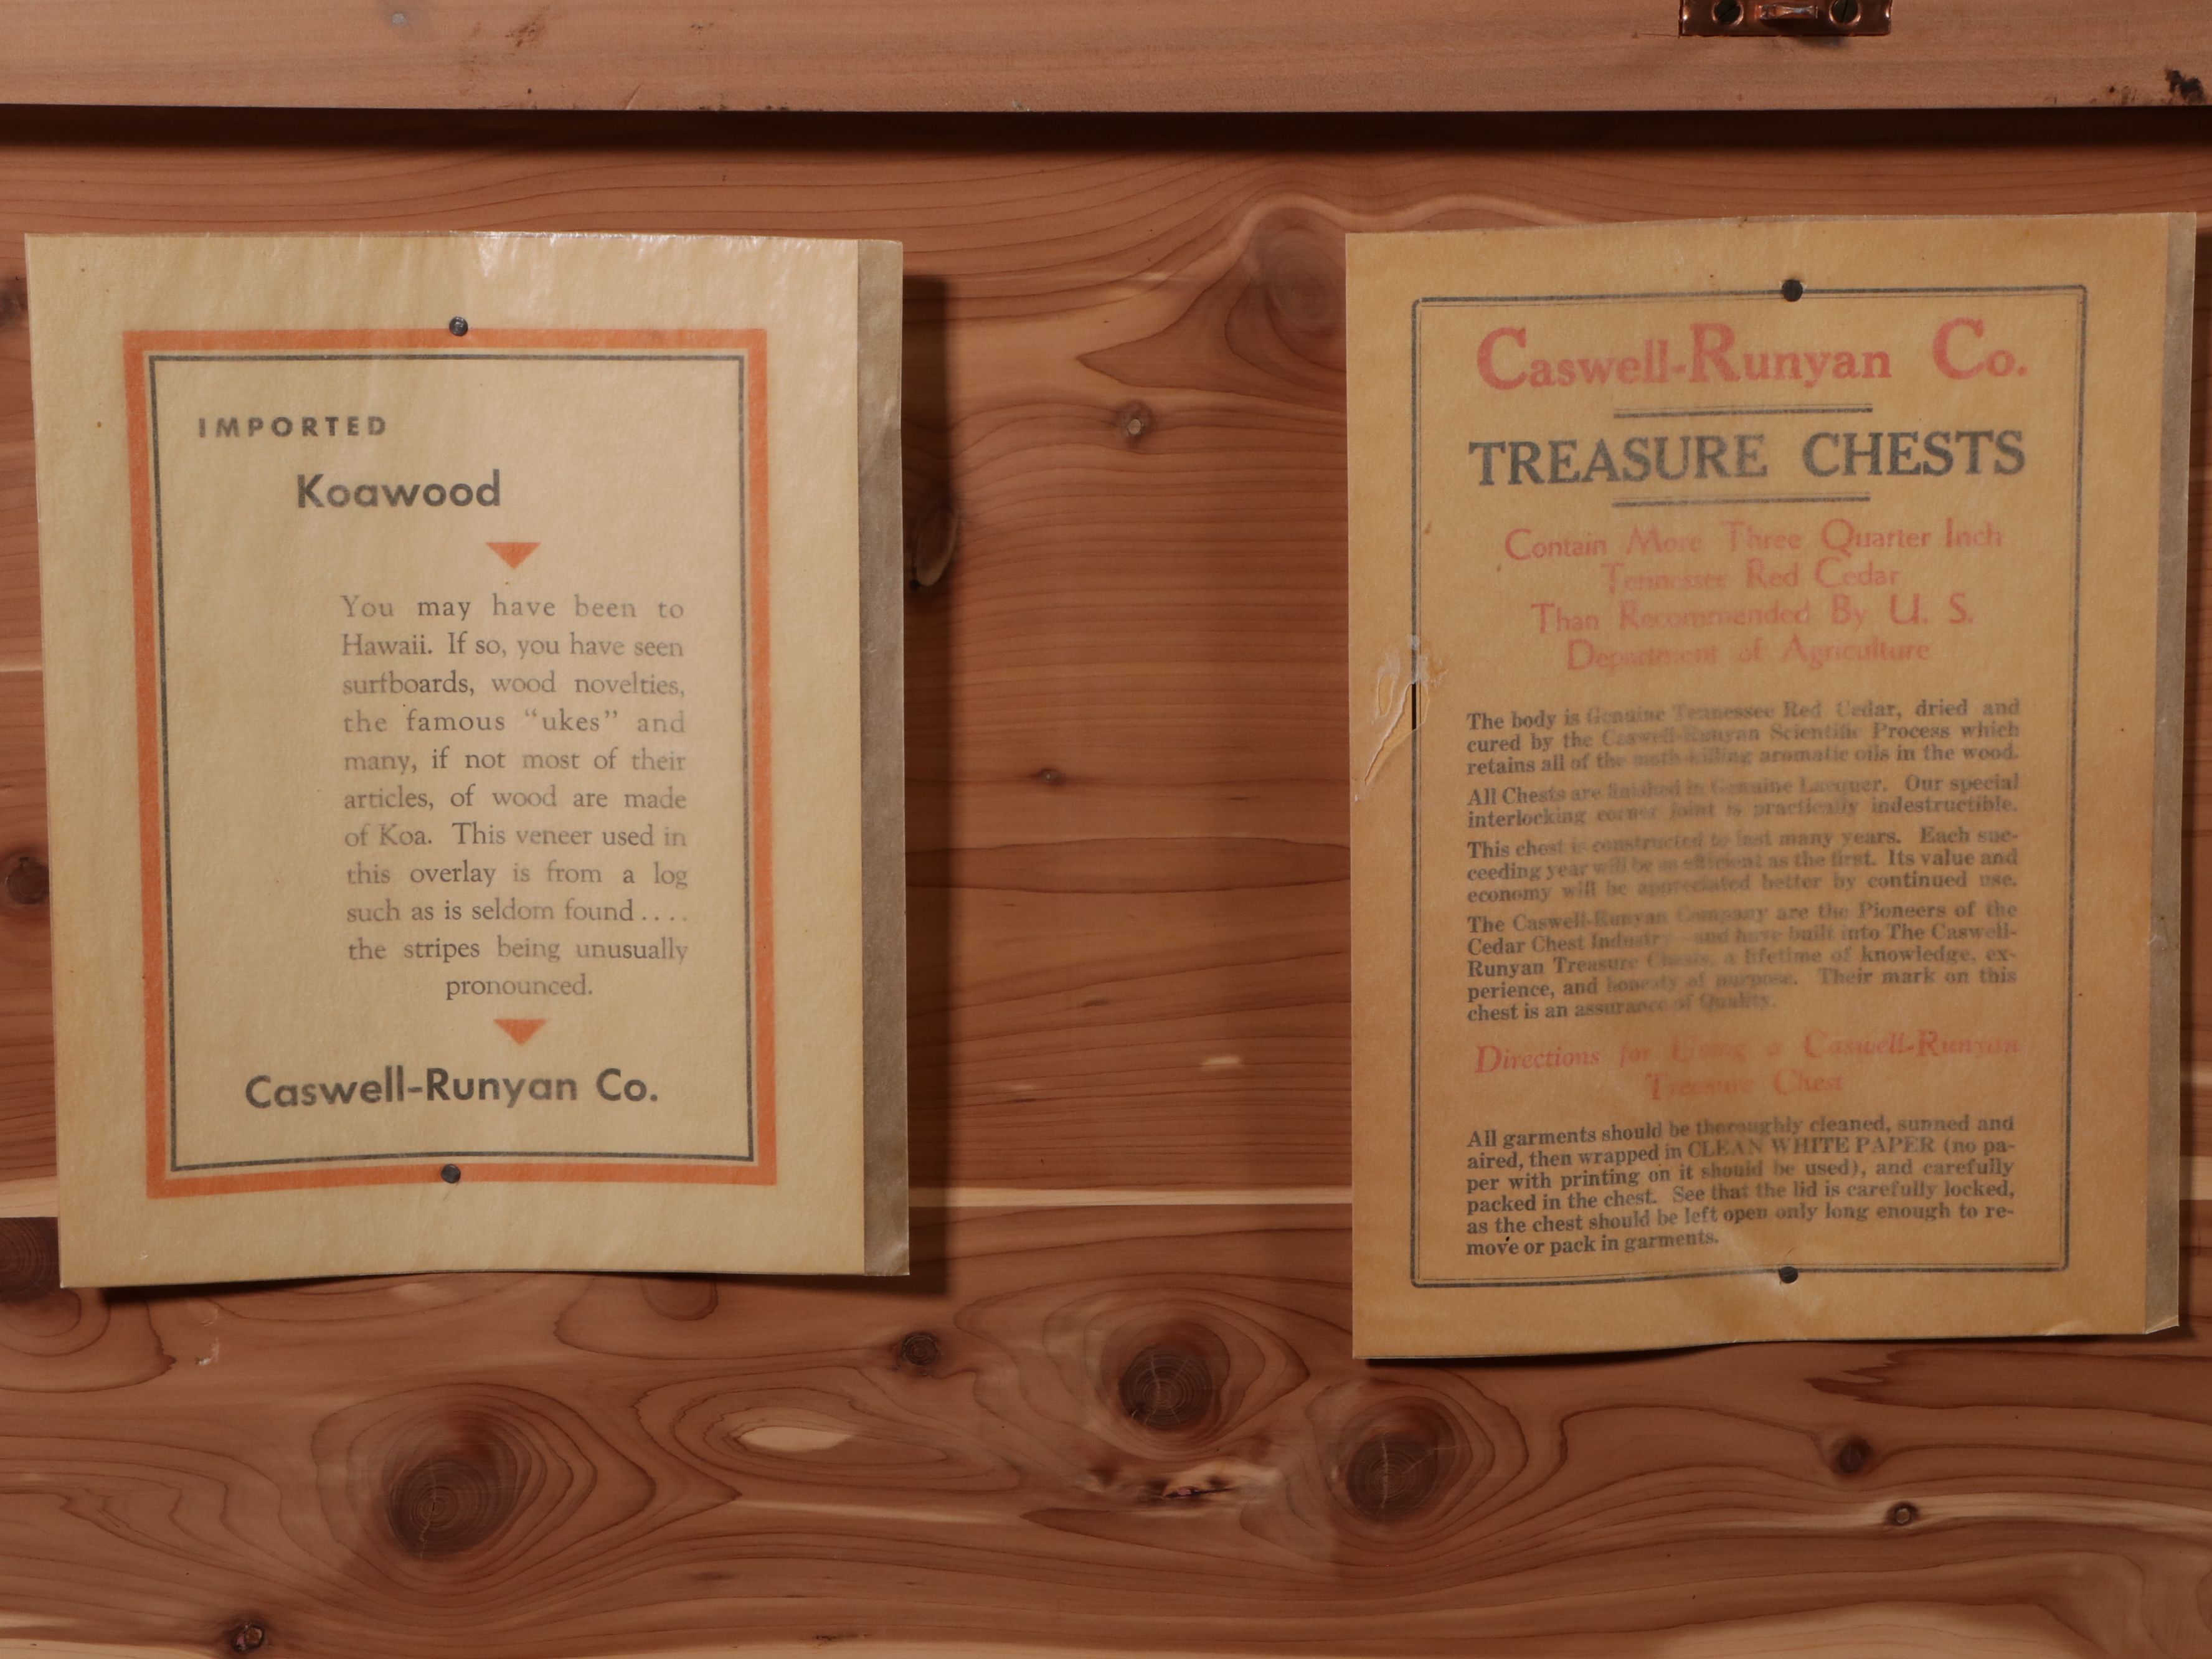 IMPORTED
Koawood
You may have been to
Hawaii. If so, you have seen
surfboards, wood novelties,
the famous "ukes" and
many, if not most of their
articles, of wood are made
of Koa. This veneer used in
this overlay is from a log
such as is seldom found . . . .
the stripes being unusually
pronounced.
Caswell-Runyan Co.
Caswell-Runyan Co.
TREASURE CHESTS
Contain More Three Quarter Inch
Tennessee Red Cedar
Than Recommended By U. S.
Department of Agriculture
The body is Genuine Tennessee Red Cedar, dried and
cured by the Caswell-Runyan Scientific Process which
retains all of the moth-killing aromatic oils in the wood.
All Chests are finished in Genuine Lacquer. Our special
interlocking corner joint is practically indestructible.
This chest is constructed to last many years. Each suc-
ceeding year will be as efficient as the first. Its value and
economy will be appreciated better by continued use.
The Caswell-Runyan Company are the Pioneers of the
Cedar Chest Industry and have built into The Caswell-
Runyan Treasure Chests, a lifetime of knowledge, ex-
perience, and honesty of purpose. Their mark on this
chest is an assurance of Quality.
Directions for Using a Caswell-Runyan
Treasure Chest
All garments should be thoroughly cleaned, sunned and
aired, then wrapped in CLEAN WHITE PAPER (no pa-
per with printing on it should be used), and carefully
packed in the chest. See that the lid is carefully locked,
as the chest should be left open only long enough to re-
move or pack in garments.